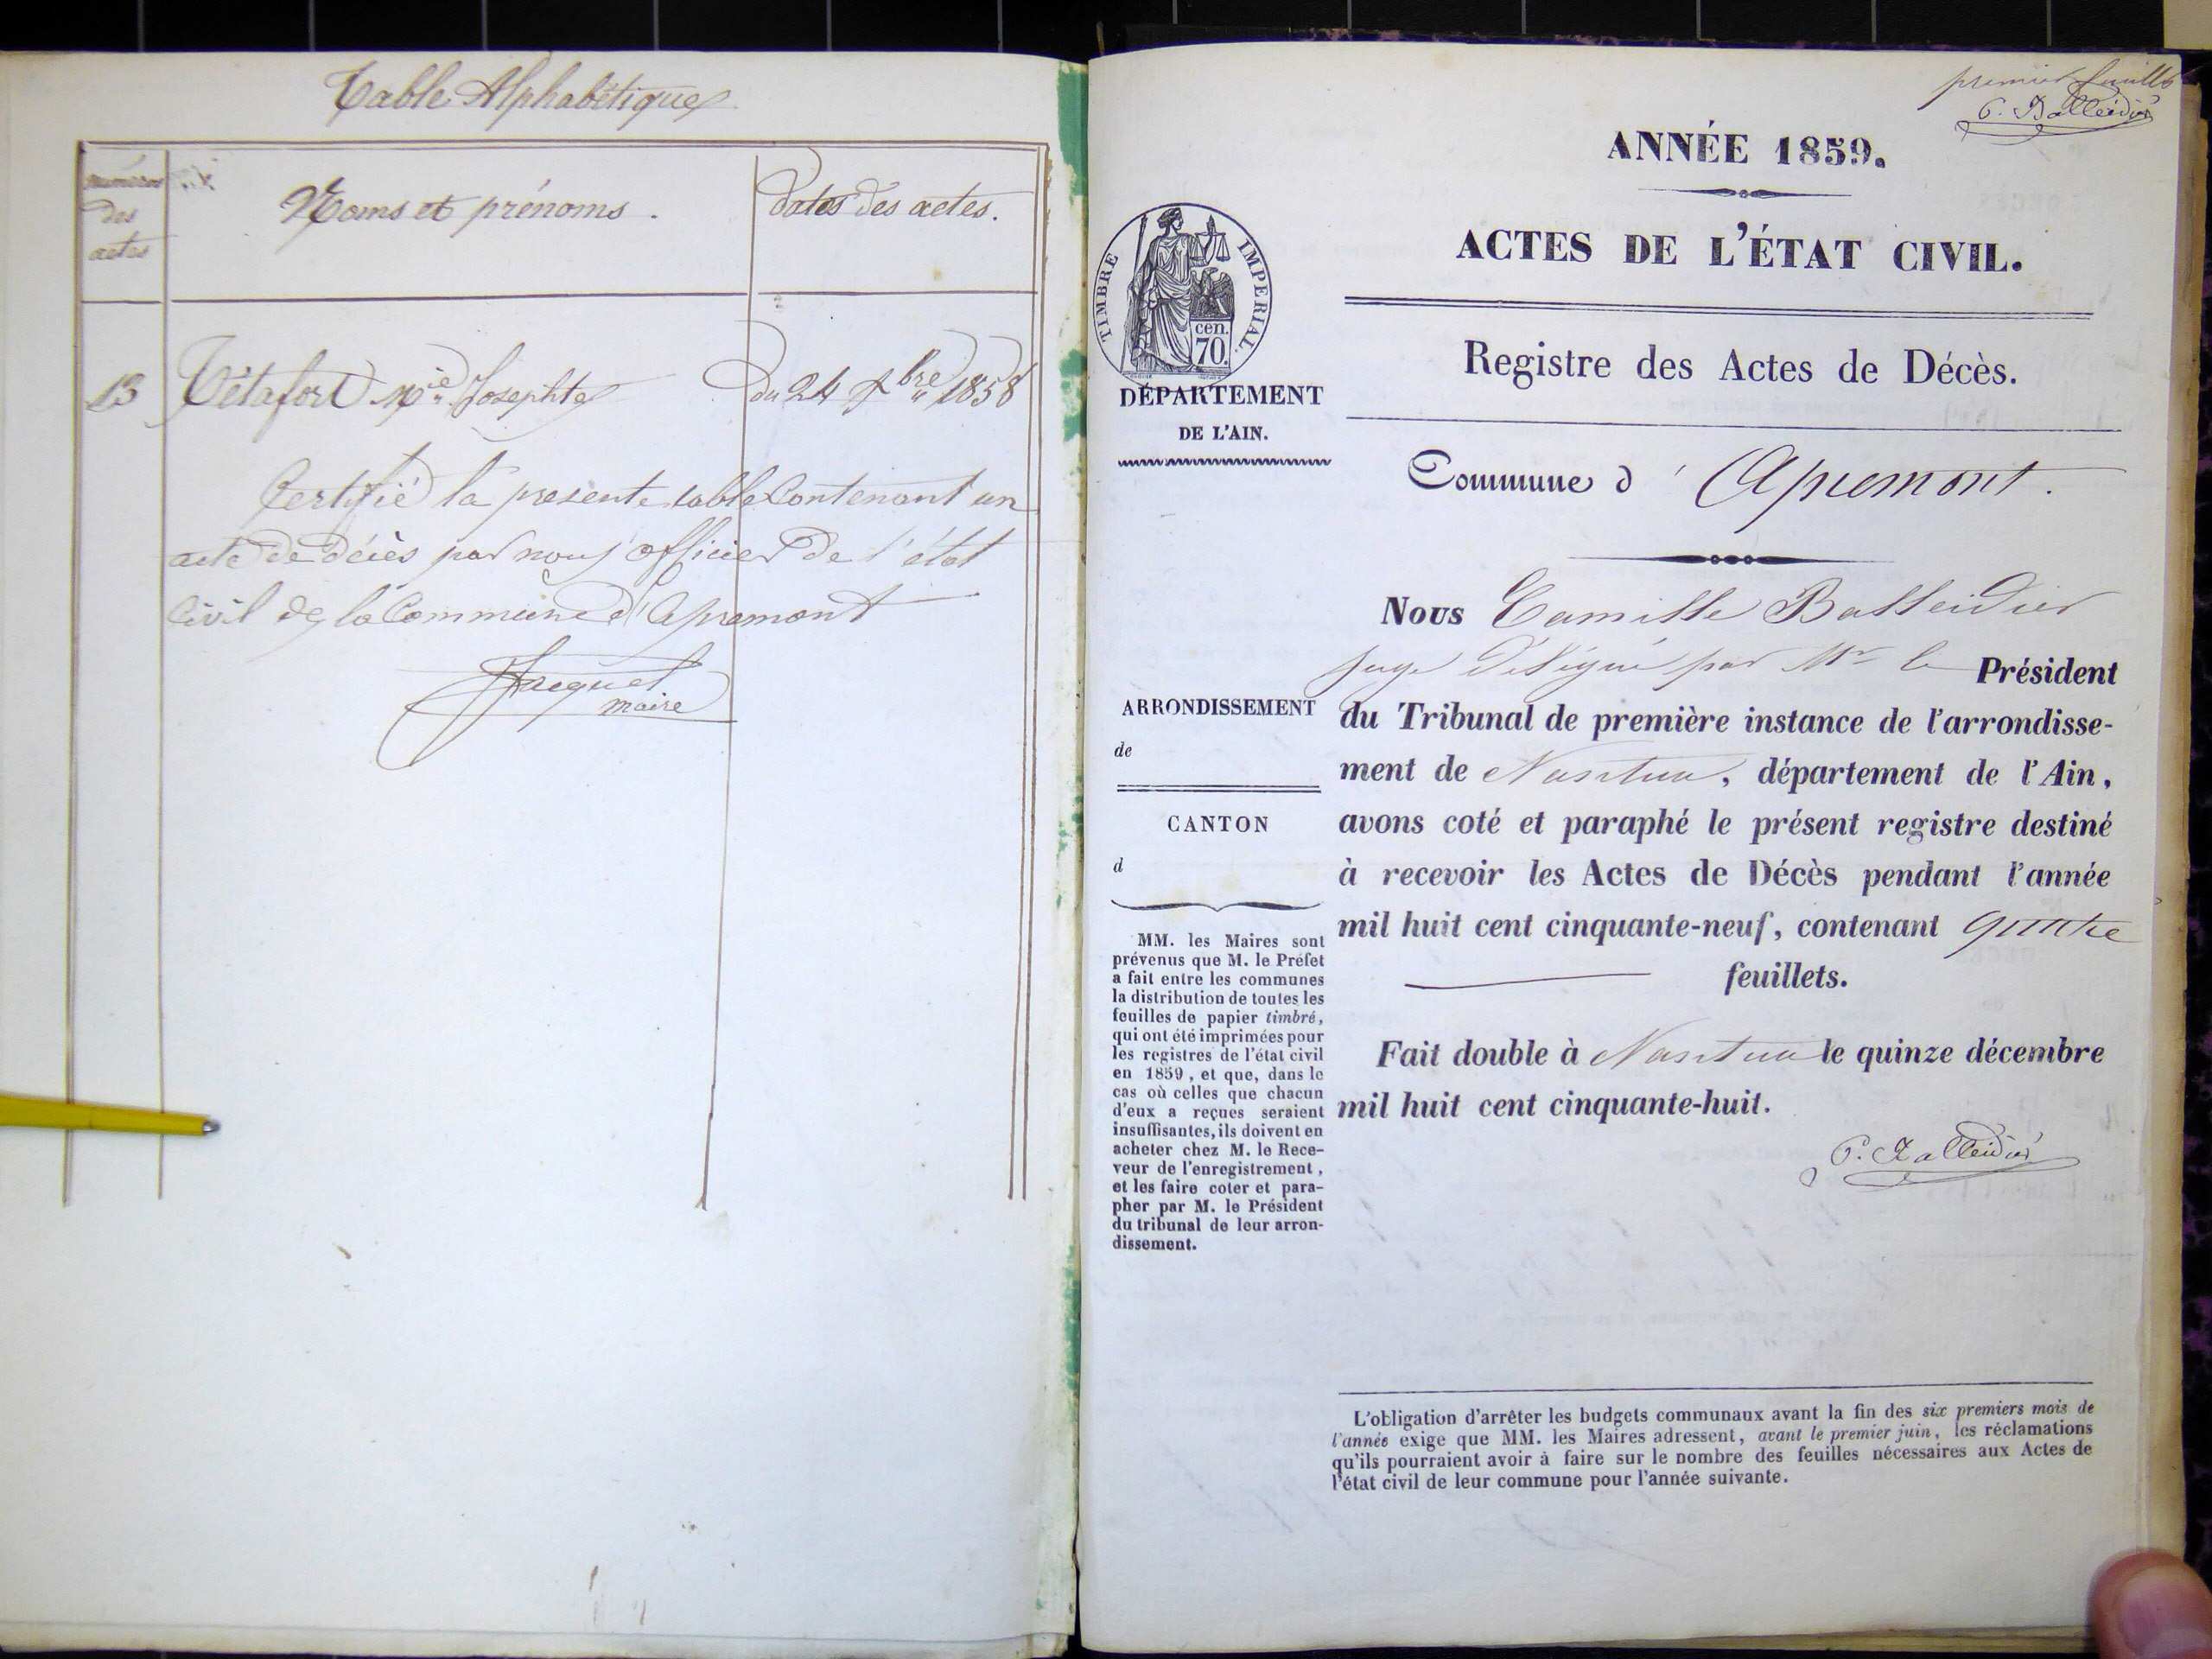 Table Alphabétique
numéros
des
actes
Noms et prénoms.
dates des actes.
13
Tétafort Mie Josephte
du 24 Xbre 1858
Certifié la presente table Contenant un
acte de décès par nous officier de l'état
Civil de la Commune d'Apremont
Jacquet
maire
premier feuillet
C. Balleidier
ANNÉE 1859.
ACTES DE L'ÉTAT CIVIL.
TIMBRE IMPERIAL.
cen.
70.
DÉPARTEMENT
DE L'AIN.
Registre des Actes de Décès.
Commune d' Apremont.
Nous Camille Balleidier
juge délégué par Mr le Président
du Tribunal de première instance de l'arrondisse-
ment de Nantua, département de l'Ain,
avons coté et paraphé le présent registre destiné
à recevoir les Actes de Décès pendant l'année
mil huit cent cinquante-neuf, contenant quatre
feuillets.
Fait double à Nantua le quinze décembre
mil huit cent cinquante-huit.
C. Balleidier
ARRONDISSEMENT
de
CANTON
d
MM. les Maires sont
prévenus que M. le Préfet
a fait entre les communes
la distribution de toutes les
feuilles de papier timbré,
qui ont été imprimées pour
les registres de l'état civil
en 1859, et que, dans le
cas où celles que chacun
d'eux a reçues seraient
insuffisantes, ils doivent en
acheter chez M. le Rece-
veur de l'enregistrement,
et les faire coter et para-
pher par M. le Président
du tribunal de leur arron-
dissement.
L'obligation d'arrêter les budgets communaux avant la fin des six premiers mois de
l'année exige que MM. les Maires adressent, avant le premier juin, les réclamations
qu'ils pourraient avoir à faire sur le nombre des feuilles nécessaires aux Actes de
l'état civil de leur commune pour l'année suivante.